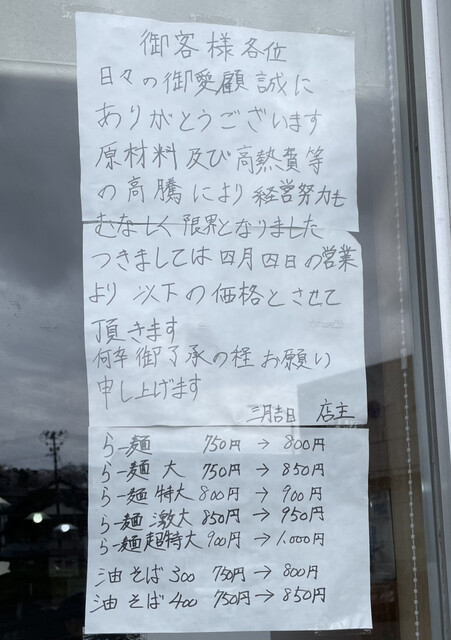 御客様各位
日々の御愛顧誠に
ありがとうございます
原材料及び高熱費等
の高騰により経営努力も
むなしく限界となりました
つきましては四月四日の営業
より以下の価格とさせて
頂きます
何卒御了承の程お願い
申し上げます
三月吉日 店主
らー麺 750円→800円
らー麺 大 750円→850円
らー麺 特大 800円→900円
らー麺 激大 850円→950円
らー麺 超特大 900円→1,000円
油そば300 750円→800円
油そば400 750円→850円